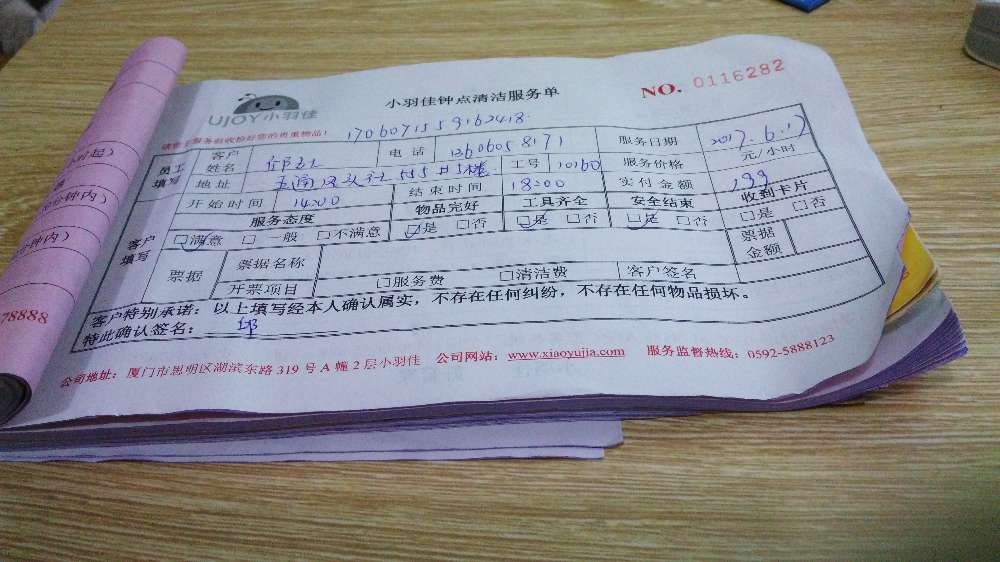 UJOY小羽佳
小羽佳钟点清洁服务单
NO. 0116282
1706071559162418
员工填写
客户姓名 电话 13606058171 服务日期 2017.6.17
地址 工号 10160 服务价格 元/小时
开始时间 14:00 结束时间 18:00 实付金额 199
服务态度 物品完好 工具齐全 安全结束 收到卡片
客户填写
□满意 □一般 □不满意 □是 □否 □是 □否 □是 □否 □是 □否
票据 票据名称 票据金额
开票项目 □服务费 □清洁费 客户签名
客户特别承诺:以上填写经本人确认属实,不存在任何纠纷,不存在任何物品损坏。
特此确认签名: 邱
公司地址:厦门市思明区湖滨东路319号A幢2层小羽佳 公司网站:www.xiaoyujia.com 服务监督热线:0592-5888123
分钟内)
78888